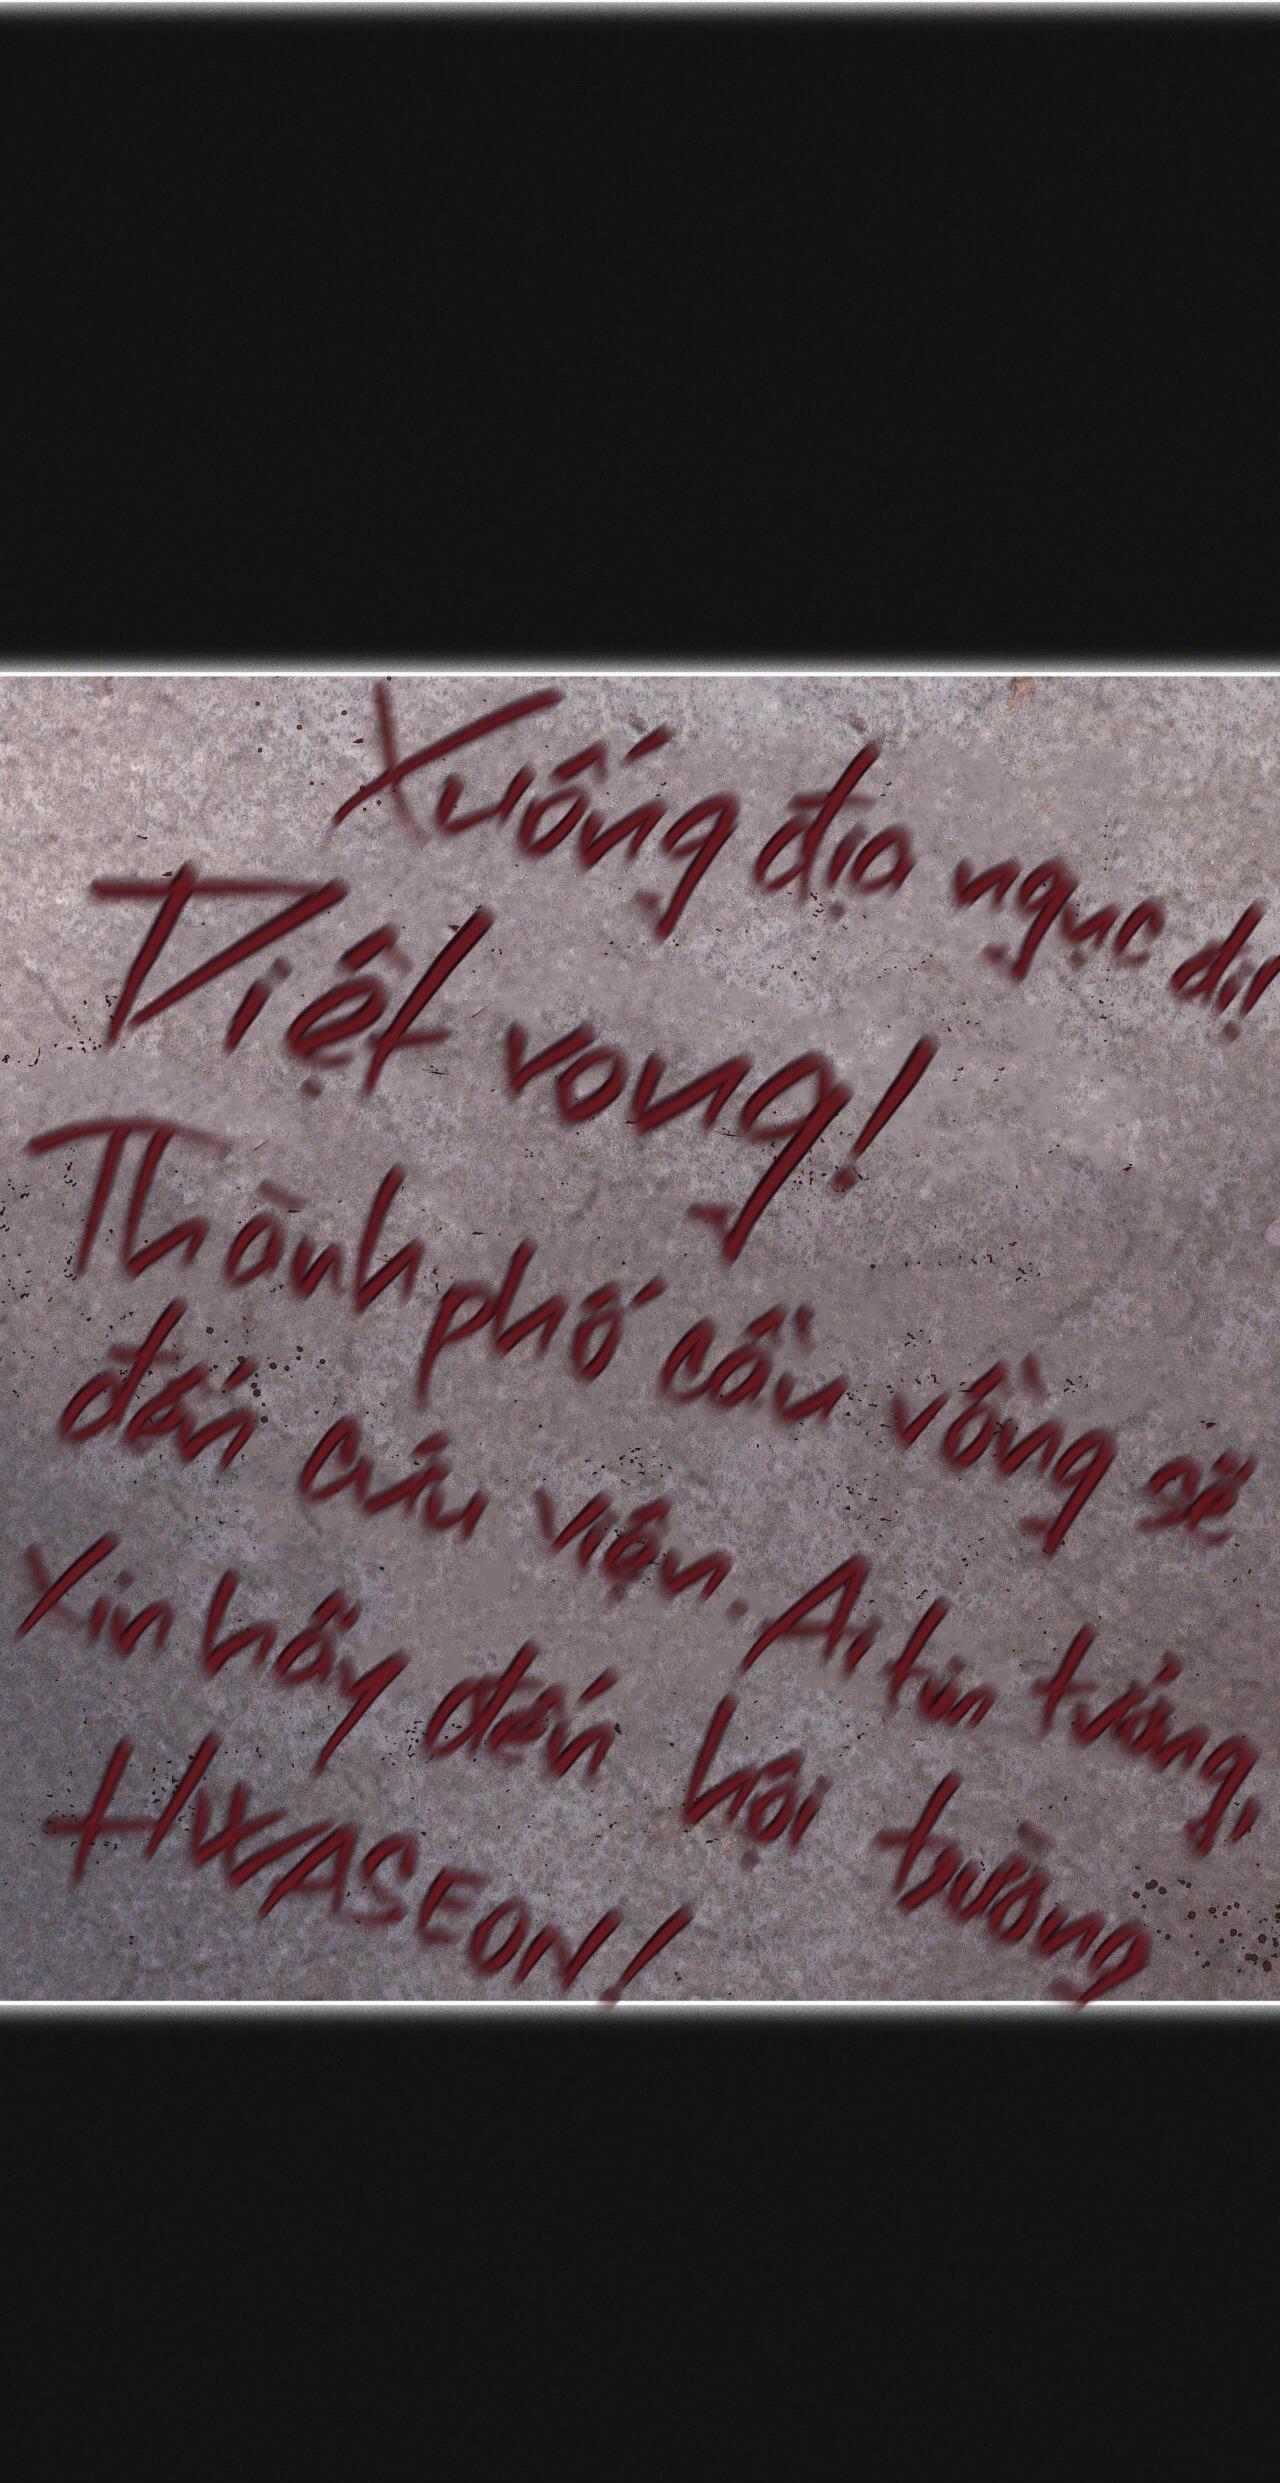 Xuống địa ngục đi!
Diệt vong!
Thành phố cầu vồng sẽ
đến cứu viện. Ai tin tưởng,
Xin hãy đến hội trường
HWASEON!